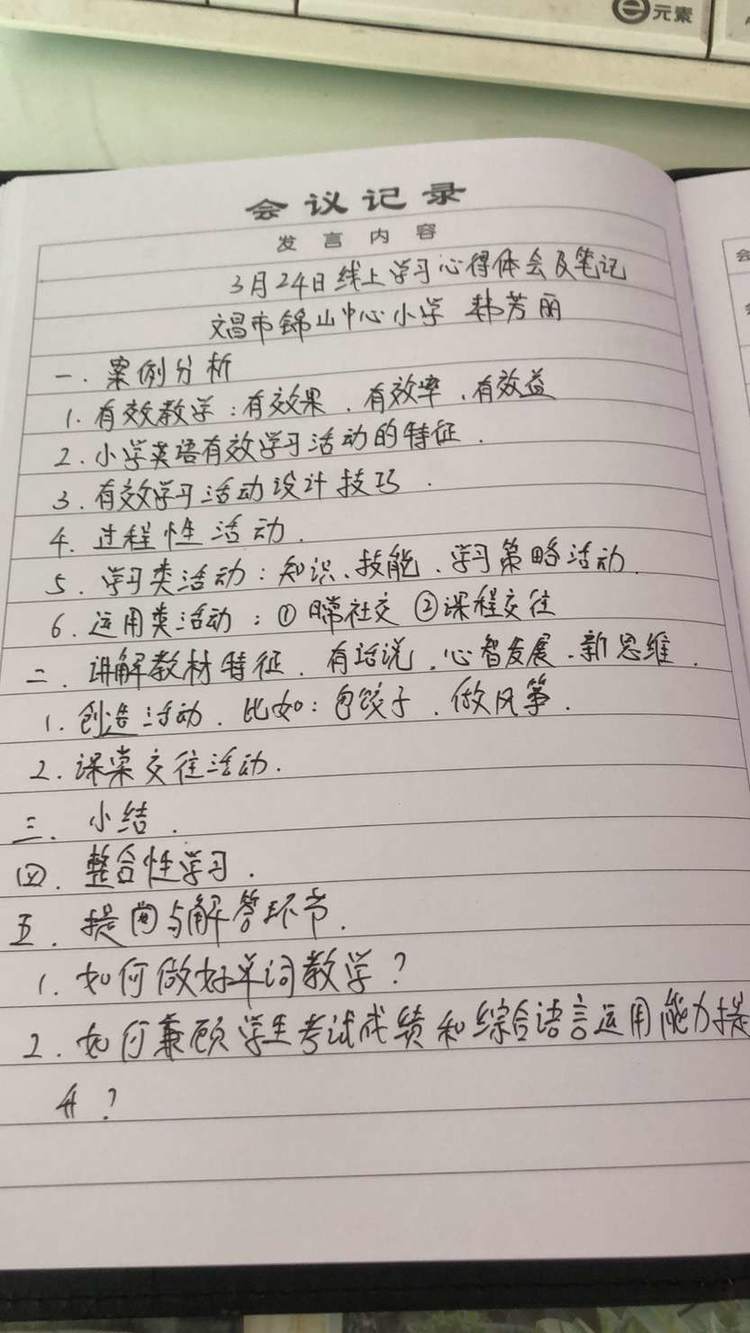 元素
会议记录
发言内容
3月24日线上学习心得体会及笔记
文昌市锦山中心小学 韩芳丽
一.案例分析
1.有效教学:有效果、有效率、有效益
2.小学英语有效学习活动的特征.
3.有效学习活动设计技巧.
4.过程性活动.
5.学习类活动:知识、技能、学习策略活动.
6.运用类活动:①日常社交 ②课程交往
二.讲解教材特征.有话说.心智发展.新思维.
1.创造活动.比如:包饺子.做风筝.
2.课桌交往活动.
三.小结.
四.整合性学习.
五.提问与解答环节.
1.如何做好单词教学?
2.如何兼顾学生考试成绩和综合语言运用能力提
升?